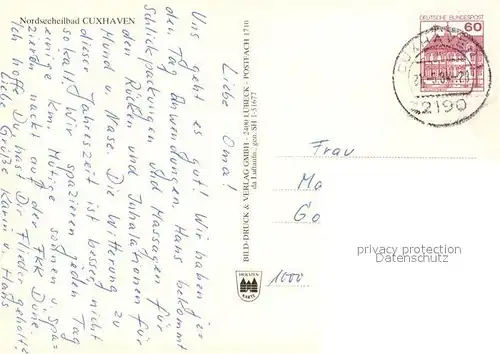 Nordseeheilbad CUXHAVEN
Liebe Oma!
Uns geht es gut! Wir haben jer
den Tag Anwendungen. Hans bekommt
Schlickpackungen und Massagen für
den Rücken und Inhalationen für
Mund u. Nase. Die Witterung zu
dieser Jahreszeit ist besser, nicht
so kalt! Wir spazieren jeden Tag
einige km. Mutige sonnen u. spa-
zieren nackt auf der FKK Düne.
Ich hoffe, Du hast Dir Flieder geholt!
Liebe Grüße Karin u. Hans
BILD-DRUCK & VERLAG GMBH - 2400 LÜBECK - POSTFACH 1710
da Luftaufn.: gen. SH 1-51677
HOLSTEN
KARTE
DEUTSCHE BUNDESPOST
60
CUXHAVEN
2190
Frau
Mo
Go
1000
privacy protection
Datenschutz